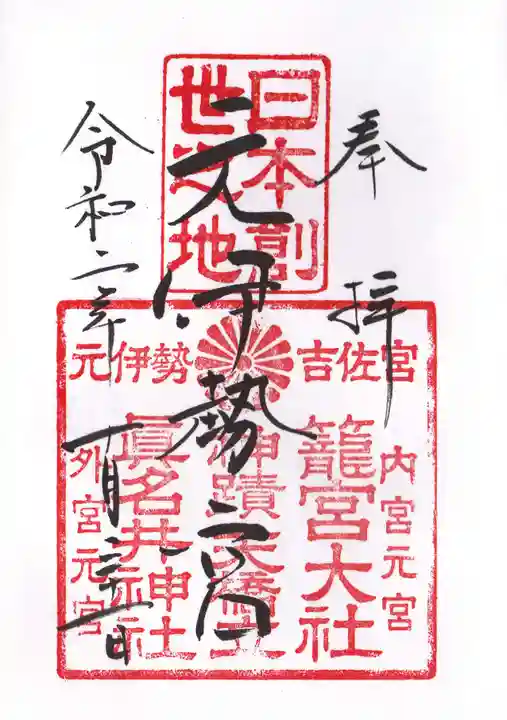 奉拝
日本創
世之地
元伊勢
令和二年
元伊勢 吉佐宮
内宮元宮
籠宮大社
神蹟天橋立
眞名井神社
外宮元宮